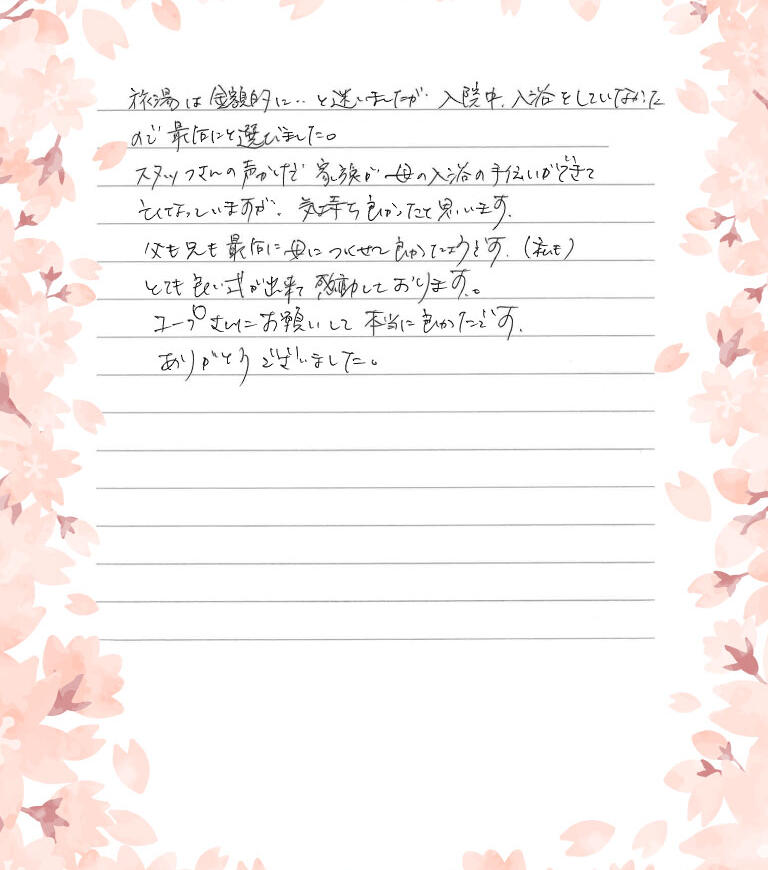 旅湯は金額的に‥と迷いましたが入院中、入浴をしていなかった
ので最后にと選びました。
スタッフさんの声かけで家族が母の入浴の手伝いができて
亡くなっていますが、気持ち良かったと思います。
父も兄も最后に母につくせて良かったようです。(私も)
とても良い式が出来て感動しております。
コープさんにお願いして本当に良かったです。
ありがとうございました。